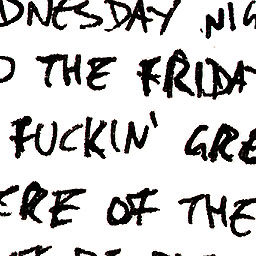 DNESDAY NIG
O THE FRIDA
FUCKIN' GRE
ERE OF THE